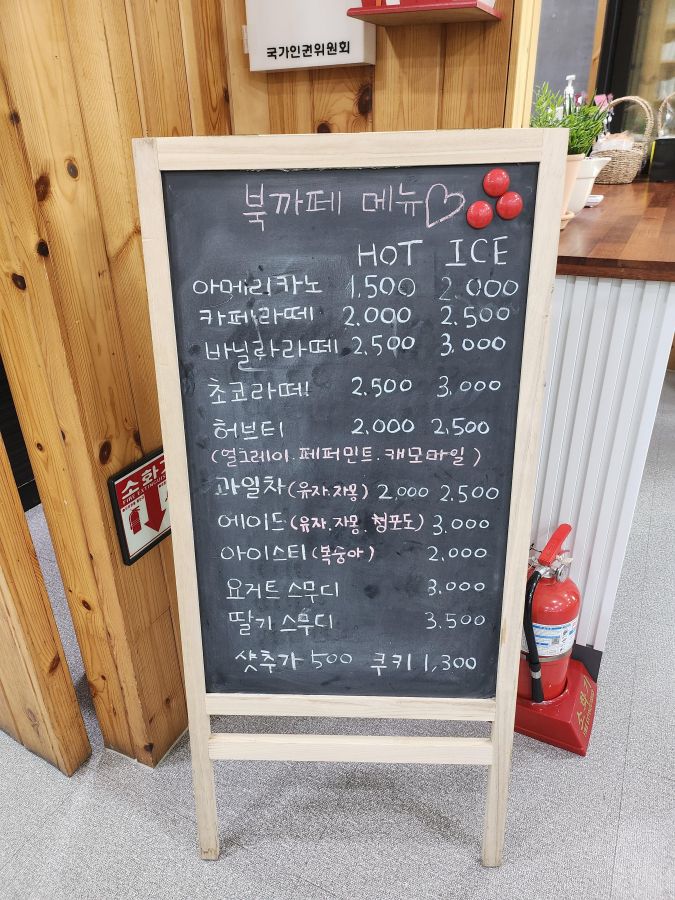 국가인권위원회
북까페 메뉴
HOT ICE
아메리카노 1,500 2.000
카페라떼 2.000 2.500
바닐라라떼 2,500 3.000
초코라떼 2,500 3.000
허브티 2.000 2.500
(얼그레이.페퍼민트.캐모마일)
과일차(유자.자몽) 2,000 2,500
에이드(유자.자몽.청포도) 3.000
아이스티(복숭아) 2.000
요거트 스무디 3.000
딸기 스무디 3.500
샷추가 500 쿠키 1,300
소화기
FIRE EXTINGUISHER
소화기